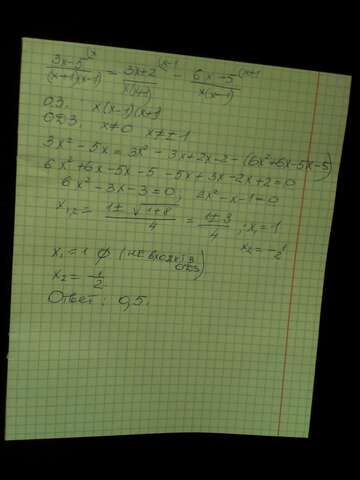 (3x-5)/((x+1)(x-1)) = (3x+2)/(x(x+1)) - (6x-5)/(x(x-1))
О.З. x(x-1)(x+1)
ОДЗ. x≠0 x≠±1
3x² - 5x = 3x² - 3x + 2x - 2 - (6x² + 6x - 5x - 5)
6x² + 6x - 5x - 5 - 5x + 3x - 2x + 2 = 0
6x² - 3x - 3 = 0; 2x² - x - 1 = 0
x₁,₂ = (1 ± √(1+8))/4 = (1±3)/4; x₁ = 1
x₂ = -1/2
x₁ = 1 ∅ (не входит в ОДЗ)
x₂ = -1/2
Ответ: 0,5.